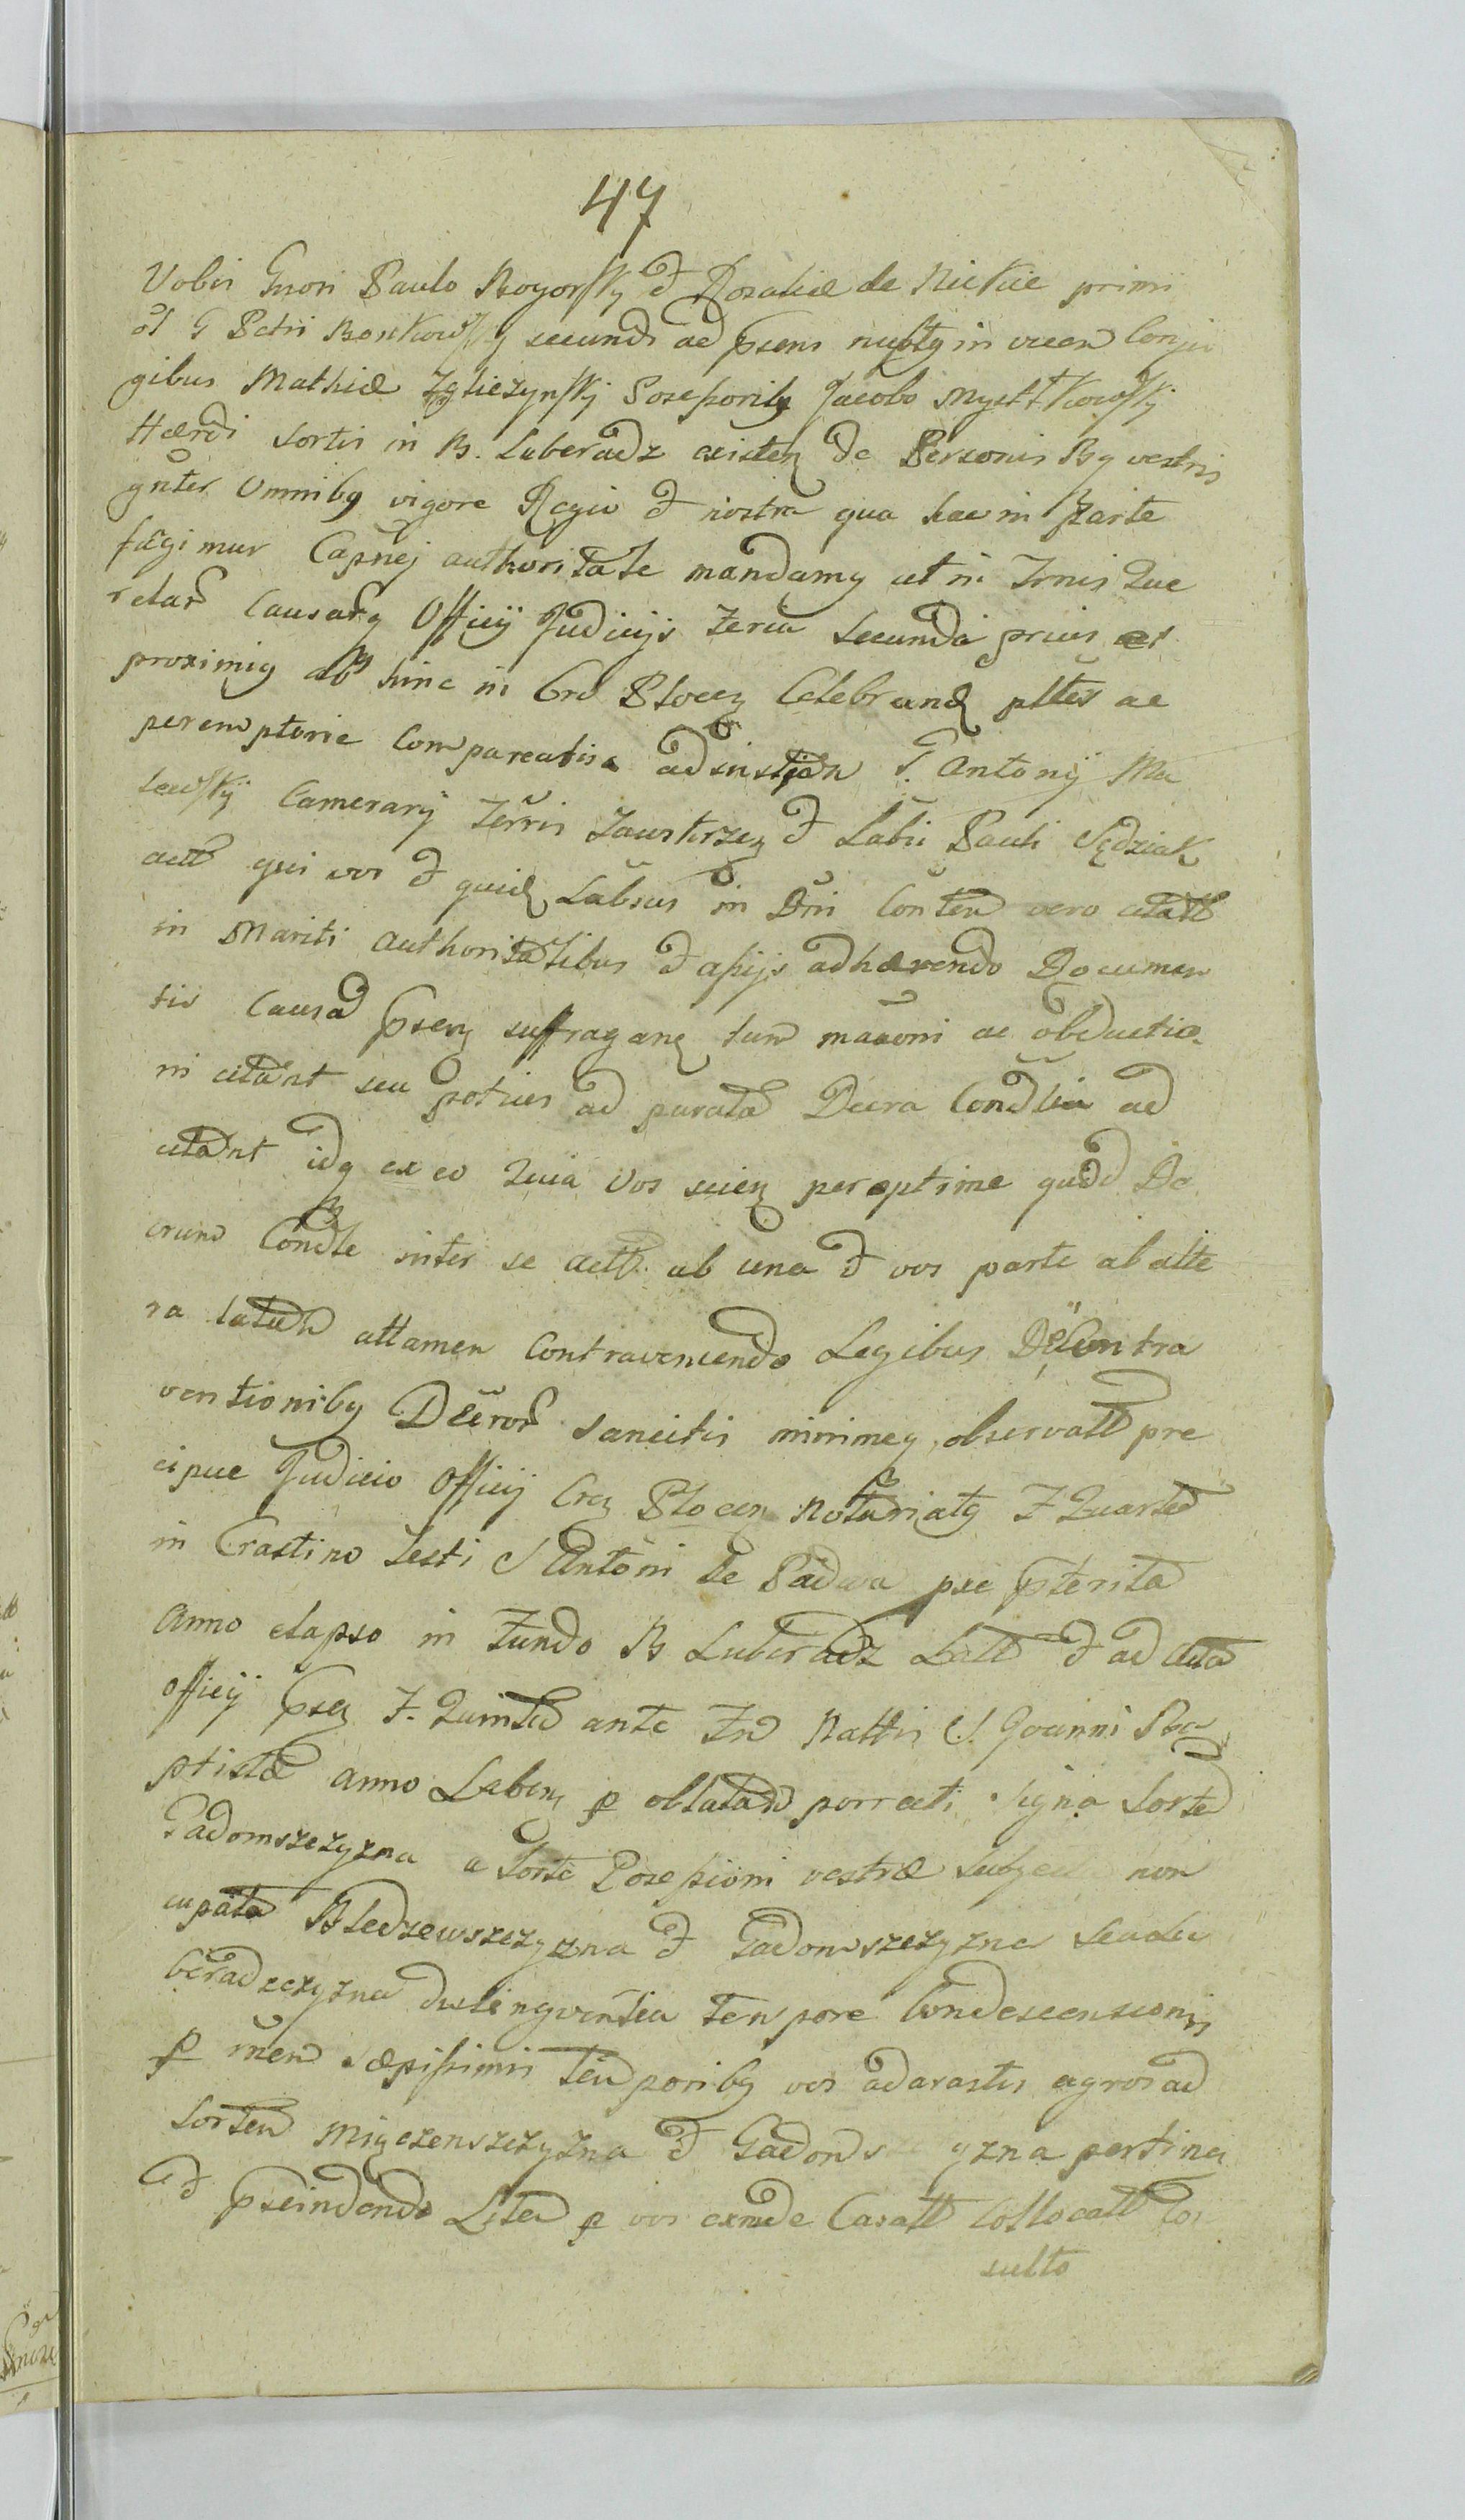 47
Vobis Gnosi Paulo Rogorsky et Rosaliæ de Nickie primi
G Petri Boskowsky secundi ad psens nuptÿ in vicem Conju
gibus Mathiæ Zgliczynsky Possessoribg Jacobo Mystkowsky
Hærdi Sortis in B. Luberadz existen De Personis Bg vestris
gnter Omnibg vigore Regia et nostra qua hac in parte
fugimur Capnej authoritate mandamg ut in Trnis Que
relar Causarg Officÿ Judicijs Feria Secunda prius et
proximig abhinc in Cro Plocen Celebrand pltes ac
peremptorie Compareatis ad instan G. Antonÿ Ma
lewskÿ Camerarÿ Terris Zawskrzen et Labii Pauli Sędziak
actt qui vos et quid Labsus in Dni Conten vero citatt
in Mariti authoritatibus et assijs adhærendo Documen
tis Causã psen suffragan tum maaoni ac obductio
ni citant seu potius ad parata Decra Condlia ad
citant idq ex eo Quia Vos scien peroptime quod De
crum Condle inter se actt. ab una et vos parte ab alte
ra latum attamen Contraveniendo Legibus De Contra
ventionibg Decror Sancitis minimeq observatt pre
cipue Judicio Officÿ Crez Plocen Notariatg F Quarta
in Crastino Festi S Antoni de Padua pxe pterita
Anno elapso in Fundo B Luberadz Latt et ad Acta
Officÿ psen F. Quinta ante Fm Nattis S. Joanni Ba
ptistæ anno Laben p oblatam porrecti signa Sorte
Gadomszczyzna a Sorte Possessioni vestræ Subjec non
cupata Bledzewszczyzna et Gadomszczyzna seu Lu
beradzczyzna distingventia tempore Condescensionis
p men sæpissimis temporibg vos adarastis agros ad
Sortem Miączenszczyzna et Gadoms yzna pertinen
Et pscindendo Litem p vos exinde Casatt Collocatt Con
sulto